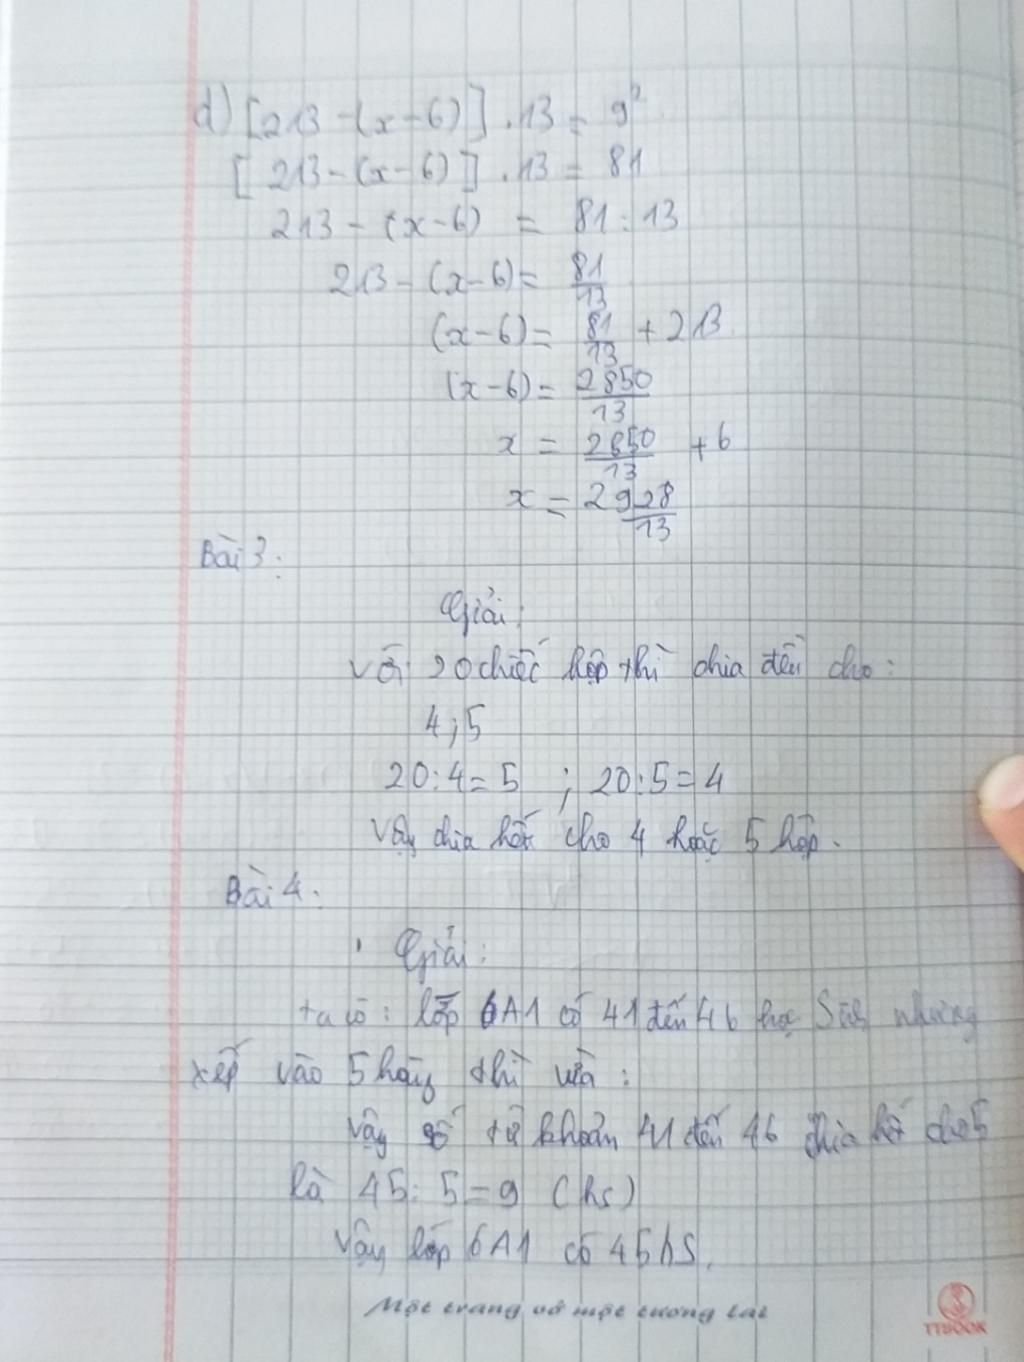 d) [213 - (x - 6)] . 13 = 9²
[213 - (x - 6)] . 13 = 81
213 - (x - 6) = 81 : 13
213 - (x - 6) = 81/13
(x - 6) = 81/13 + 213
(x - 6) = 2850/13
x = 2850/13 + 6
x = 2928/13
Bài 3:
Giải:
Với 20 chiếc hộp thì chia đều cho:
4; 5
20 : 4 = 5 ; 20 : 5 = 4
Vậy chia hết cho 4 hoặc 5 hộp.
Bài 4:
Giải:
ta có: lớp 6A1 có 41 đến 46 học Sinh nhưng
xếp vào 5 hàng thì vừa:
Vậy số từ khoản 41 đến 46 chia hết cho 5
là 45 : 5 = 9 (hs)
Vậy lớp 6A1 có 45 hS.
Một trang vở một tương lai
TTBOOK